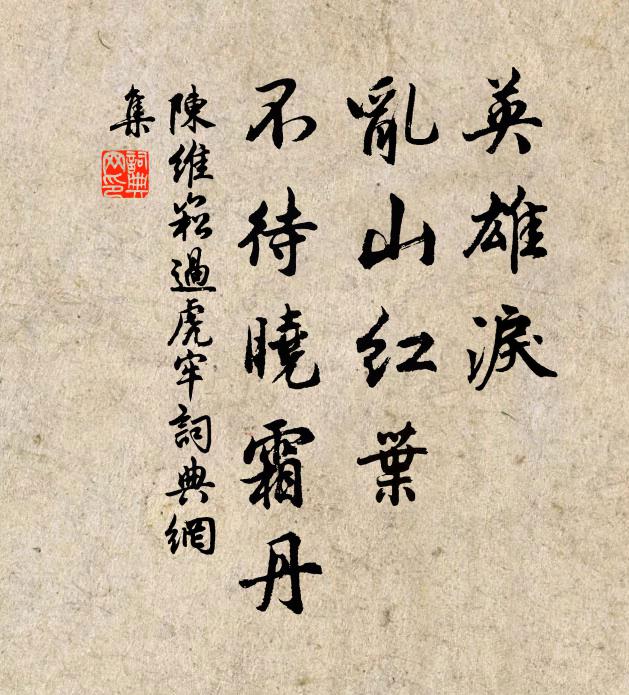 英雄淚
亂山红葉
不待曉霜丹
陳維崧過虎牢詞典網
集
詞典
网印